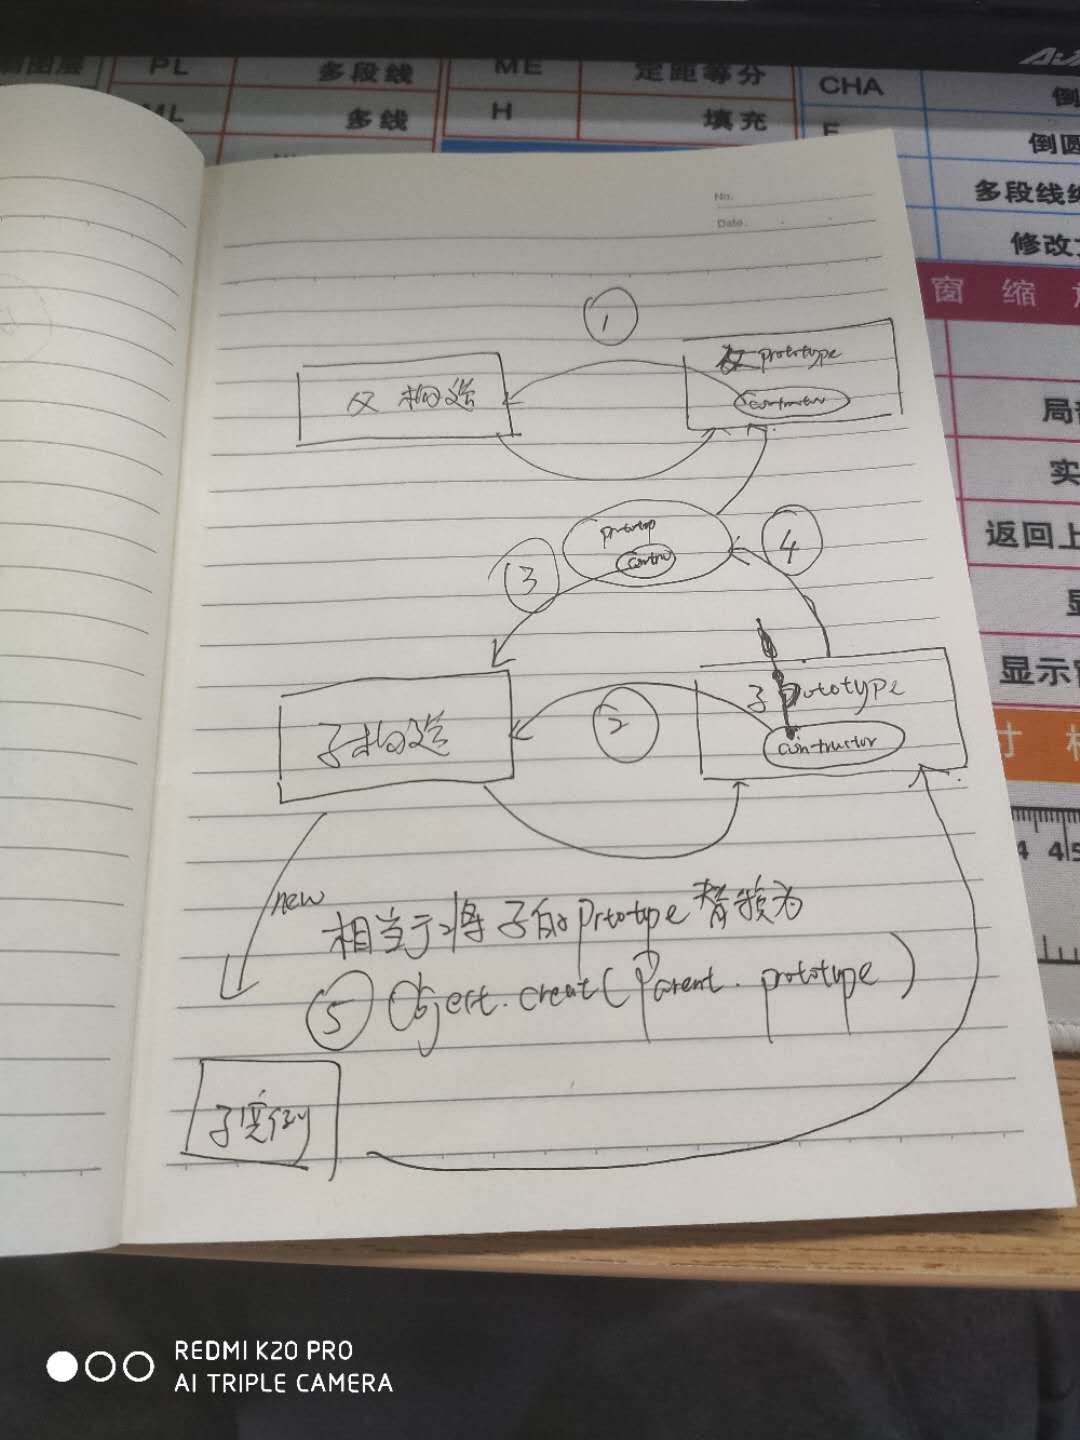 图层
PL
多段线
ME
定距等分
CHA
倒
ML
多线
H
填充
F
倒圆
多段线编
修改文
窗 缩 放
局部
实
返回上
显
显示
寸 标
4 4 5
No.
Date.
1
父构造
父 prototype
contructor
prototyp
contru
3
4
子构造
2
子 prototype
contructor
new
相当于将子的prtotype替换为
5 Object.creat(Parent.prototype)
子实例
REDMI K20 PRO
AI TRIPLE CAMERA